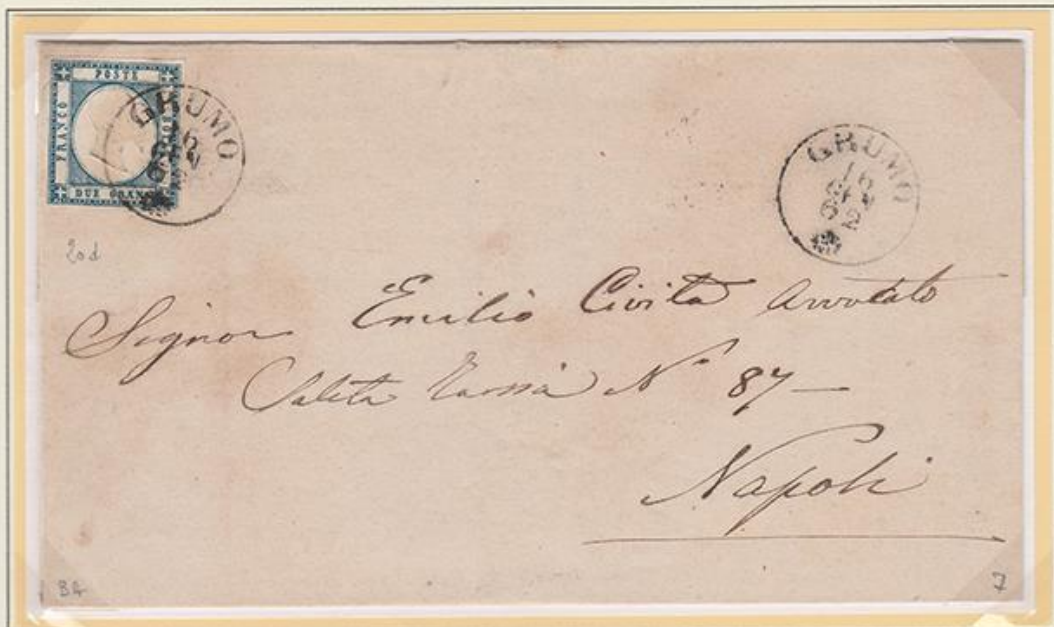 POSTE
FRANCO
DUE GRANA
GRUMO
16
GRUMO
16
62
20d
Signor Emilio Civita Avvocato
Salita N° 87
Napoli
BA
7